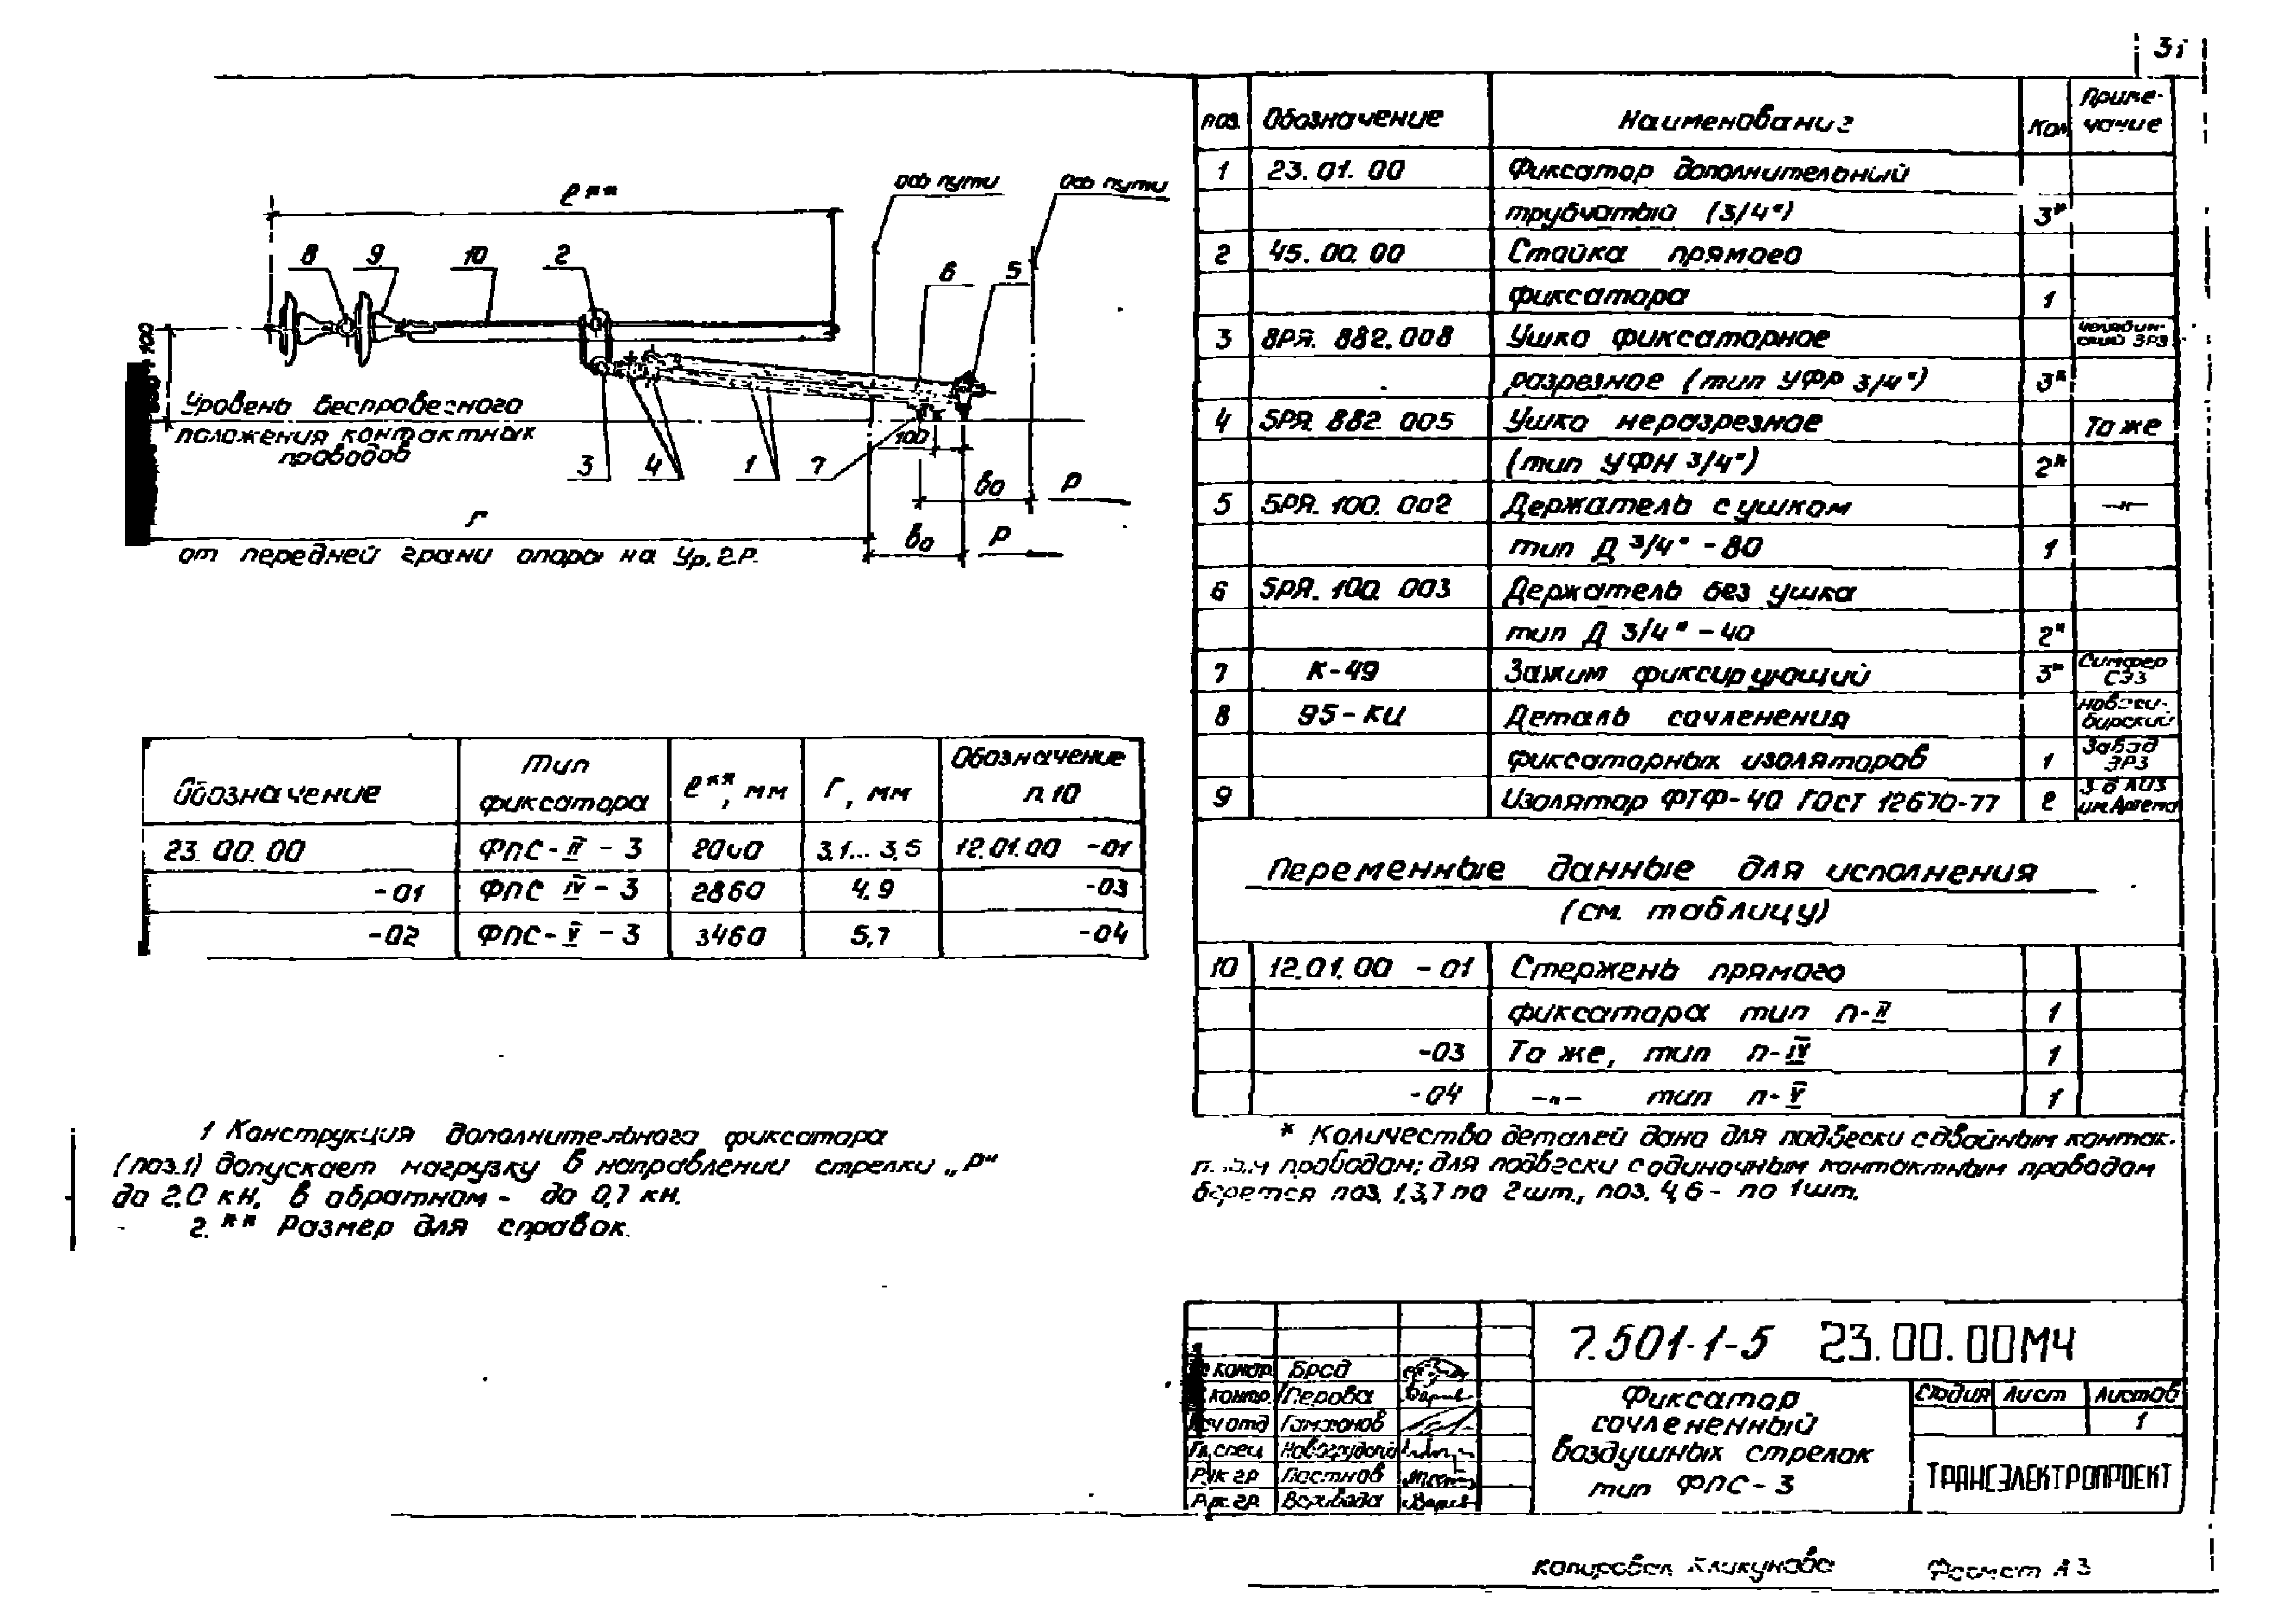 31
ось пути
ось пути
ℓ**
8 9 10 2
6 5
100
Уровень беспровесного
положения контактных
проводов
100
3 4 1 7
в₀ Р
Г
в₀ Р
от передней грани опоры на Ур. г.р.
Обозначение Тип фиксатора ℓ**, мм Г, мм Обозначение п.10
23.00.00 ФПС-II-3 2000 3,1...3,5 12.01.00 -01
-01 ФПС IV-3 2860 4,9 -03
-02 ФПС-V-3 3460 5,7 -04
1 Конструкция дополнительного фиксатора
(поз.1) допускает нагрузку в направлении стрелки „Р"
до 2.0 кн, в обратном - до 0,7 кн.
2. ** Размер для справок.
поз. Обозначение Наименование Кол Приме-чание
1 23.01.00 Фиксатор дополнительный
трубчатый (3/4") 3*
2 45.00.00 Стойка прямого
фиксатора 1
3 8РЯ.882.008 Ушко фиксаторное Челябинский ЭРЗ
разрезное (тип УФР 3/4") 3*
4 5РЯ.882.005 Ушко неразрезное То же
(тип УФН 3/4") 2*
5 5РЯ.100.002 Держатель с ушком —"—
тип Д 3/4" - 80 1
6 5РЯ.100.003 Держатель без ушка
тип Д 3/4" - 40 2*
7 К-49 Зажим фиксирующий 3* Симфер СЭЗ
8 95-КИ Деталь сочленения Новоси-бирский
фиксаторных изоляторов 1 Завод ЭРЗ
9 Изолятор ФТФ-40 ГОСТ 12670-77 2 З-д АИЗ им.Артема
Переменные данные для исполнения
(см. таблицу)
10 12.01.00 -01 Стержень прямого
фиксатора тип П-II 1
-03 То же, тип П-IV 1
-04 —"— тип П-V 1
* Количество деталей дано для подвески с двойным контак-
проводом; для подвески с одиночным контактным проводом
берется поз. 1,3,7 по 2шт., поз. 4,6 - по 1шт.
7.501-1-5 23.00.00МЧ
контр. Брод
контр. Перова
Нач отд Гамзонов
Гл.спец
Рук гр Постнов
Рук. гр.
Фиксатор
сочлененный
воздушных стрелок
тип ФПС-3
Стадия Лист Листов
1
ТРАНСЭЛЕКТРОПРОЕКТ
Копировал Кликунова Формат А3